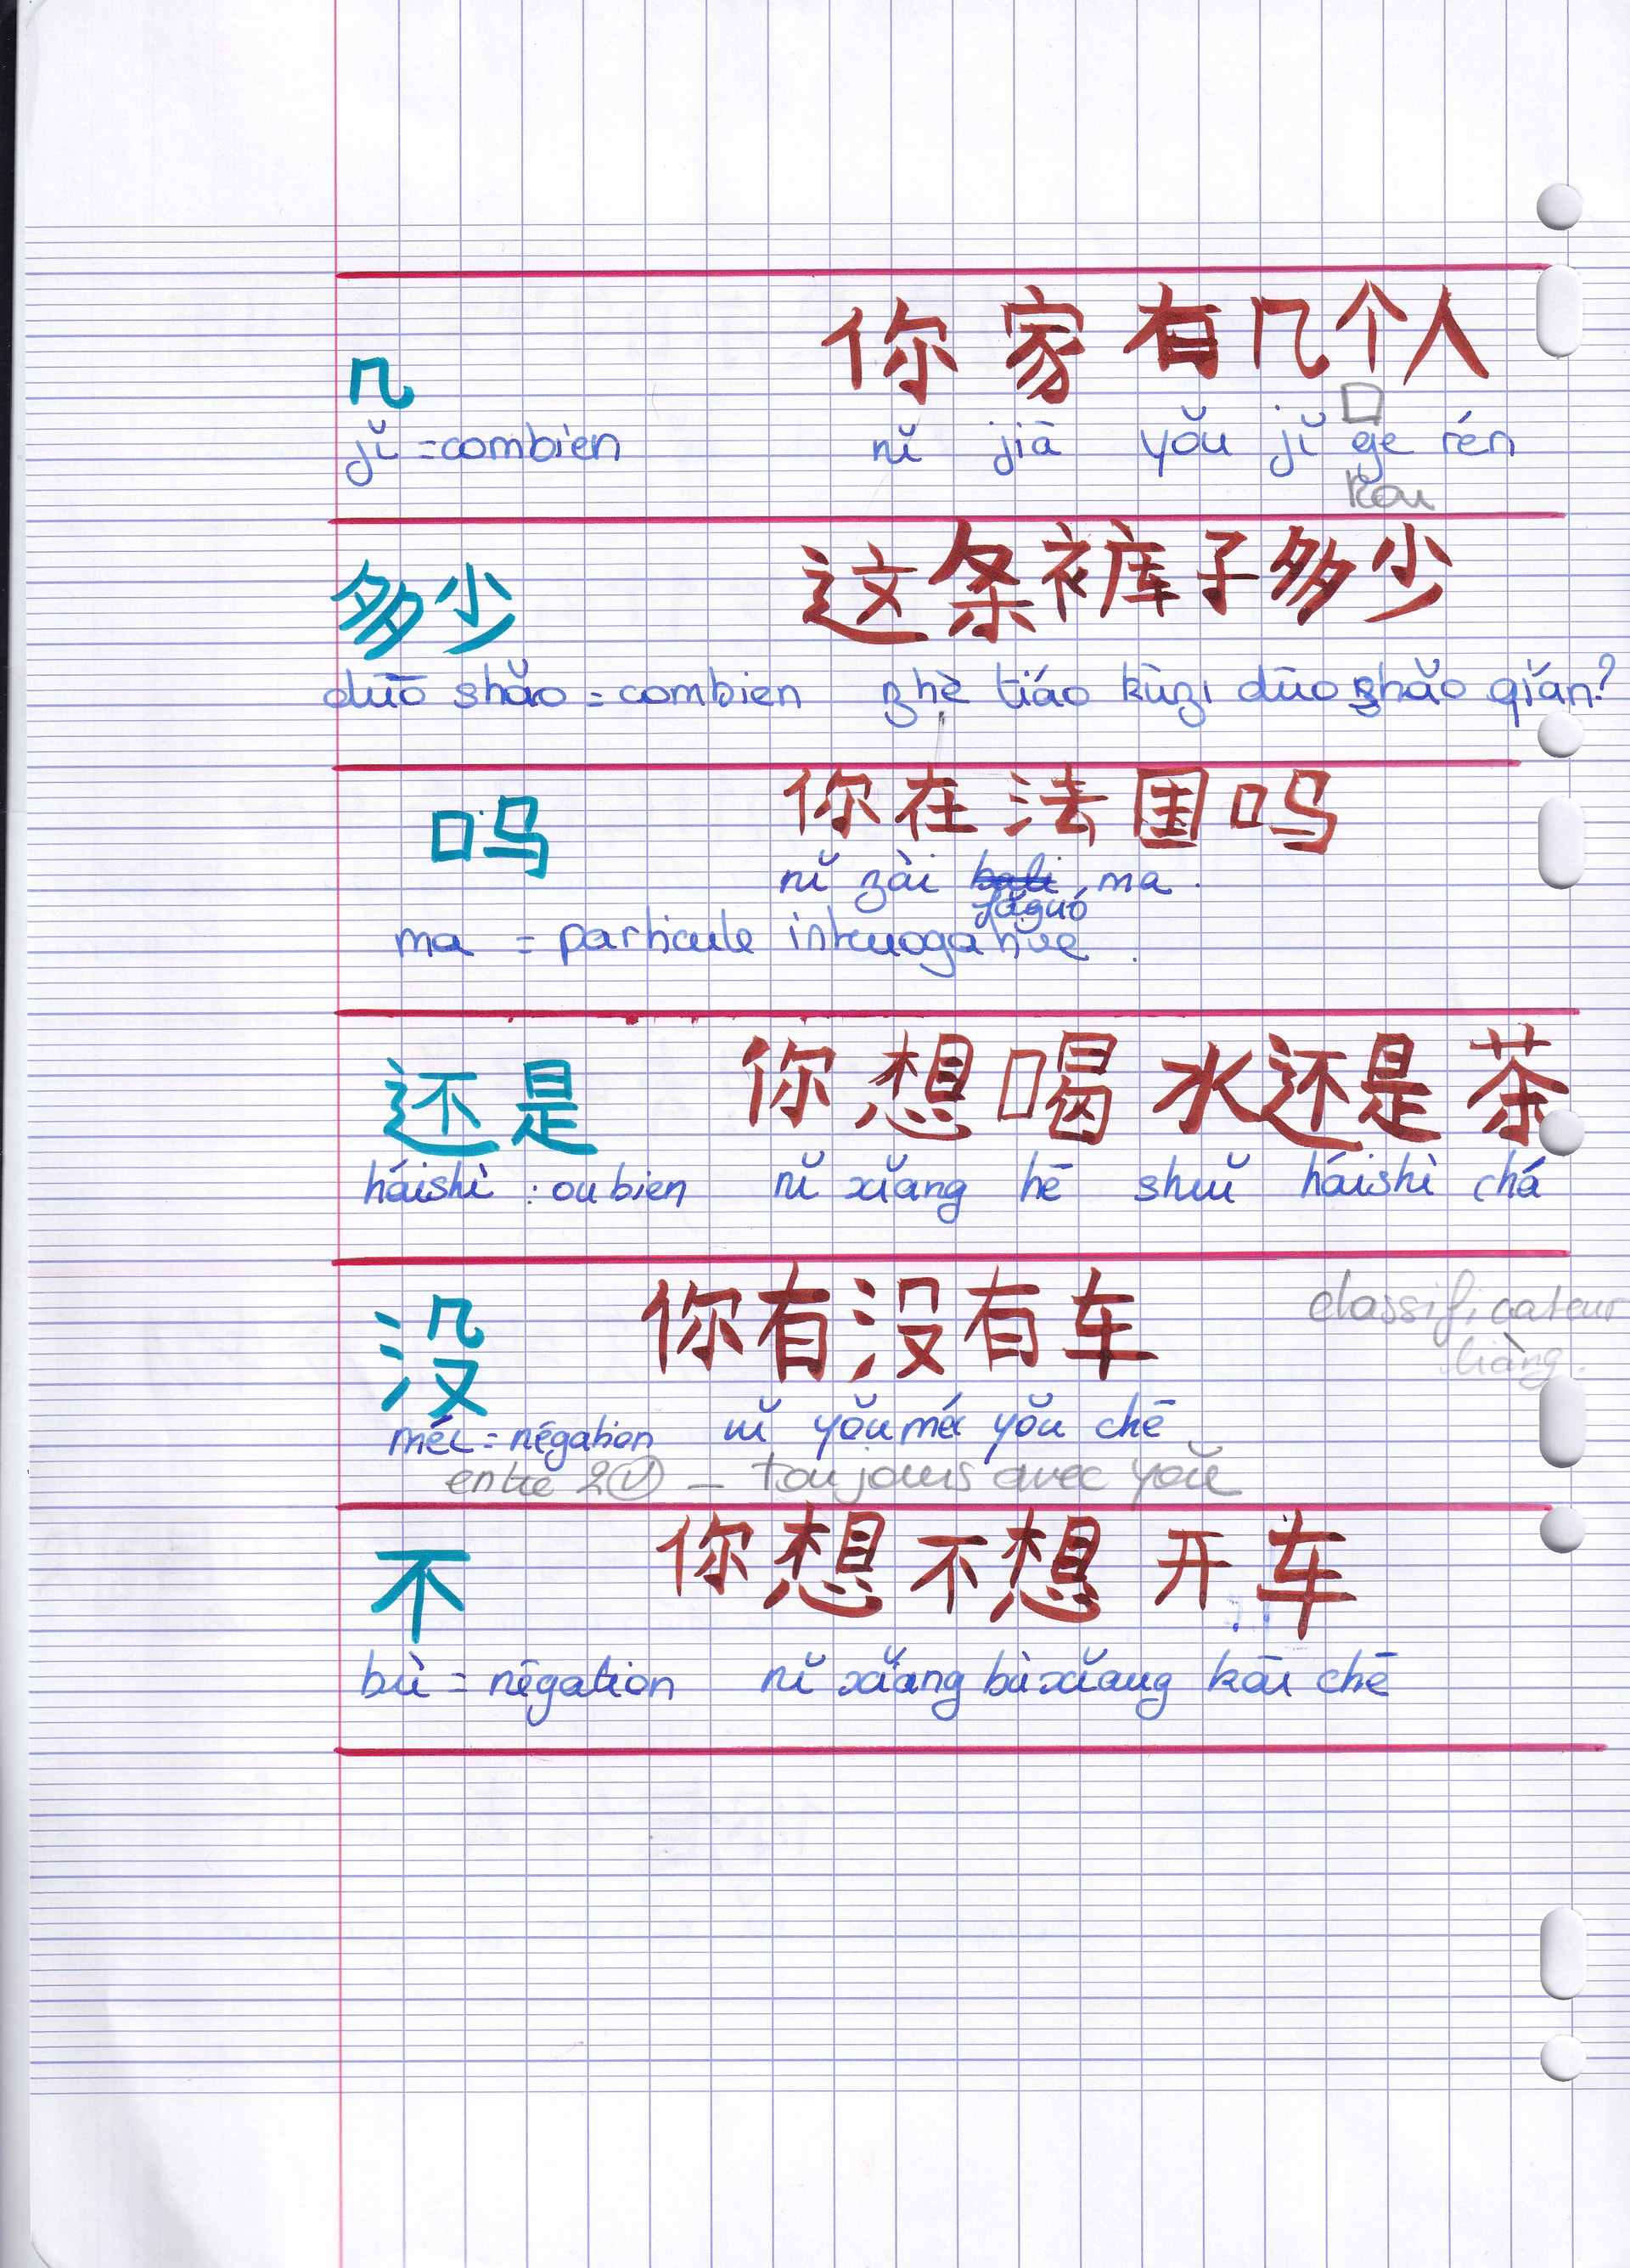 你家有几个人
几
口
jǐ = combien nǐ jiā yǒu jǐ ge rén
kou
这条裤子多少
多少
duō shǎo = combien zhè tiáo kùzi duō shǎo qián?
你在法国吗
吗
nǐ zài bali ma.
fǎguó
ma = particule interrogative.
你想喝水还是茶
还是
háishì : ou bien nǐ xiǎng hē shuǐ háishì chá
你有没有车
classificateur
liàng.
没
méi = négation nǐ yǒu méi yǒu chē
entre 2 V — toujours avec yǒu
你想不想开车
不
bù = négation nǐ xiǎng bù xiǎng kāi chē